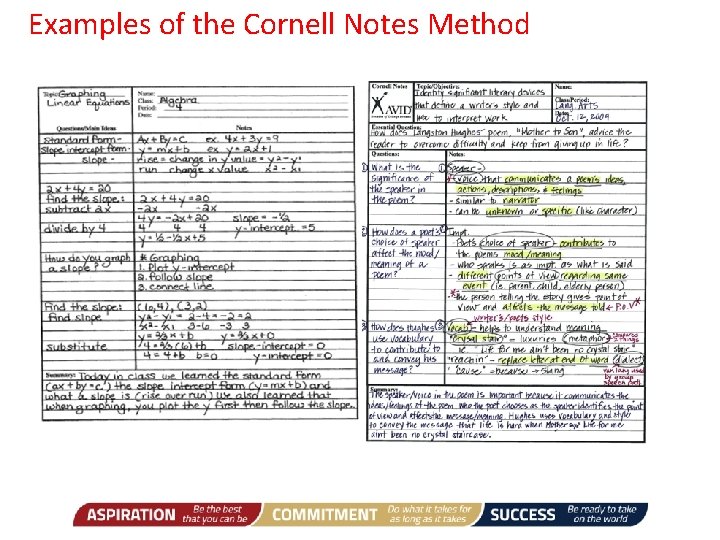 Examples of the Cornell Notes Method
Topic: Graphing
Linear Equations
Name:
Class: Algebra
Period:
Date:
Questions/Main Ideas
Notes
Standard Form-
Ax+By=C ex. 4x+3y=9
Slope intercept form-
y=mx+b ex. y=2x+1
slope-
rise = change in y value = y₂-y₁
run change x value x₂-x₁
2x+4y=20
Find the slope:
subtract 2x
divide by 4
2x+4y=20
-2x -2x
4y=-2x+20 slope=-½
4 4 4 y-intercept=5
y=-½x+5
How do you graph
a slope?
* Graphing
1. Plot y-intercept
2. follow slope
3. connect line.
Find the slope
substitute
(6,4), (3,2)
y₂-y₁ = 2-4 = -2 = 2
x₂-x₁ 3-6 -3 3
y=⅔x+b y=⅔x+0
4=⅔·6+b slope-intercept=0
4=4+b b=0
Summary: Today in class we learned the standard form
(ax+by=c,) the slope intercept form (y=mx+b) and
what a slope is (rise over run) We also learned that
when graphing, you plot the y first then follow the slope.
Cornell Notes
AVID
Topic/Objective:
Identify significant literary devices
that define a writer's style and
use to interpret work
Name:
Class/Period:
Lang. Arts
Date:
Oct. 12, 2009
Essential Question:
How does Langston Hughes' poem, "Mother to Son", advise the
reader to overcome difficulty and keep from giving up in life?
Questions:
Notes:
① What is the
significance of
the speaker in
the poem?
① Speaker-
voice that communicates a poem's ideas,
actions, descriptions, & feelings
- similar to narrator
- can be unknown or specific (like character)
② How does a poet's
choice of speaker
affect the mood/
meaning of a
poem?
② Impt.
- Poet's choice of speaker contributes to
the poems mood/meaning
- who speaks is as impt. as what is said
- different points of view regarding same
event (ie. parent, child, elderly person)
* the person telling the story gives point of
view and affects the message told ← P.O.V
writer's/poet's style
③ How does Hughes
use vocabulary
to contribute to
and convey his
message?
③ Vocab - helps to understand meaning
"crystal stair" - luxuries (metaphor)
ie. Life for me ain't been no crystal stair
"reachin'" - replace letter at end of word (dialect)
"'cause" - because → slang
lang used
by group
Summary:
The speaker/voice in the poem is important because it communicates the
ideas/feelings of the poem. Who the poet chooses as the speaker identifies the point
of view and affects the message/meaning. Hughes uses vocabulary and style
to convey the message that life is hard when Mother says "Life for me
aint been no crystal staircase.
ASPIRATION
Be the best
that you can be
COMMITMENT
Do what it takes for
as long as it takes
SUCCESS
Be ready to take
on the world